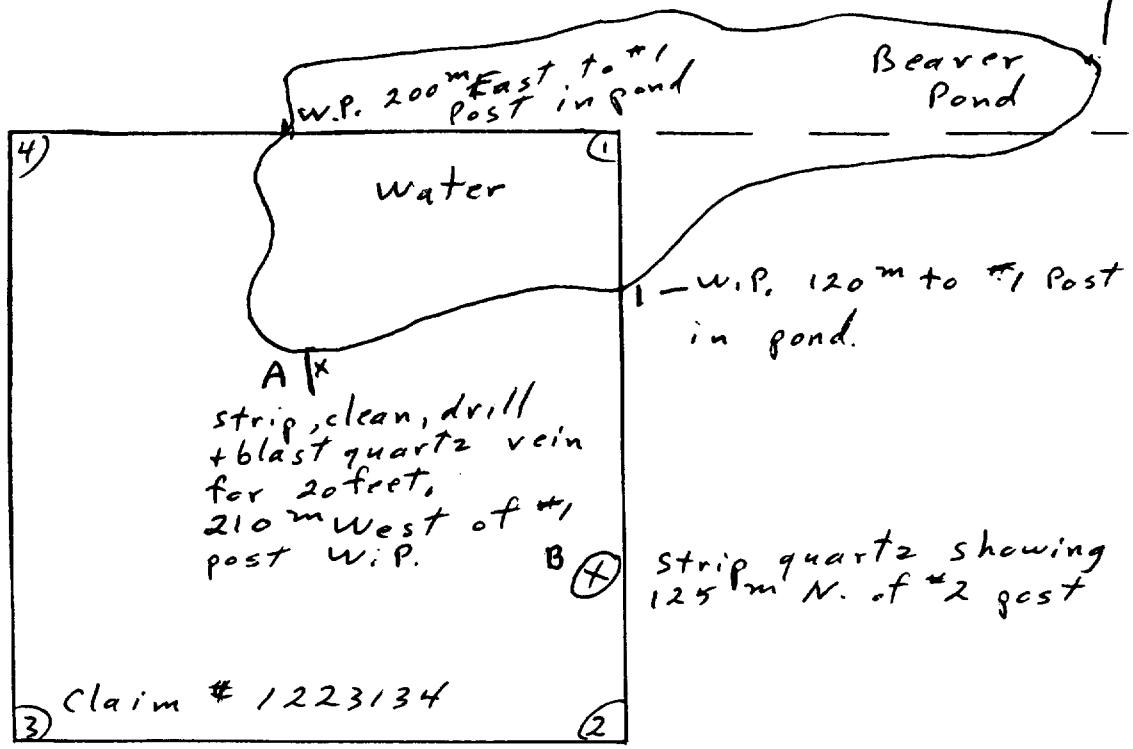 W.P. 200m East to #1
Post in pond
Beaver
Pond
4
1
Water
1 - W.P. 120m to #1 Post
in pond.
A X
strip, clean, drill
+ blast quartz vein
for 20 feet,
210m West of #1
post W.P.
B X
strip quartz showing
125m N. of #2 post
Claim # 1223134
3
2